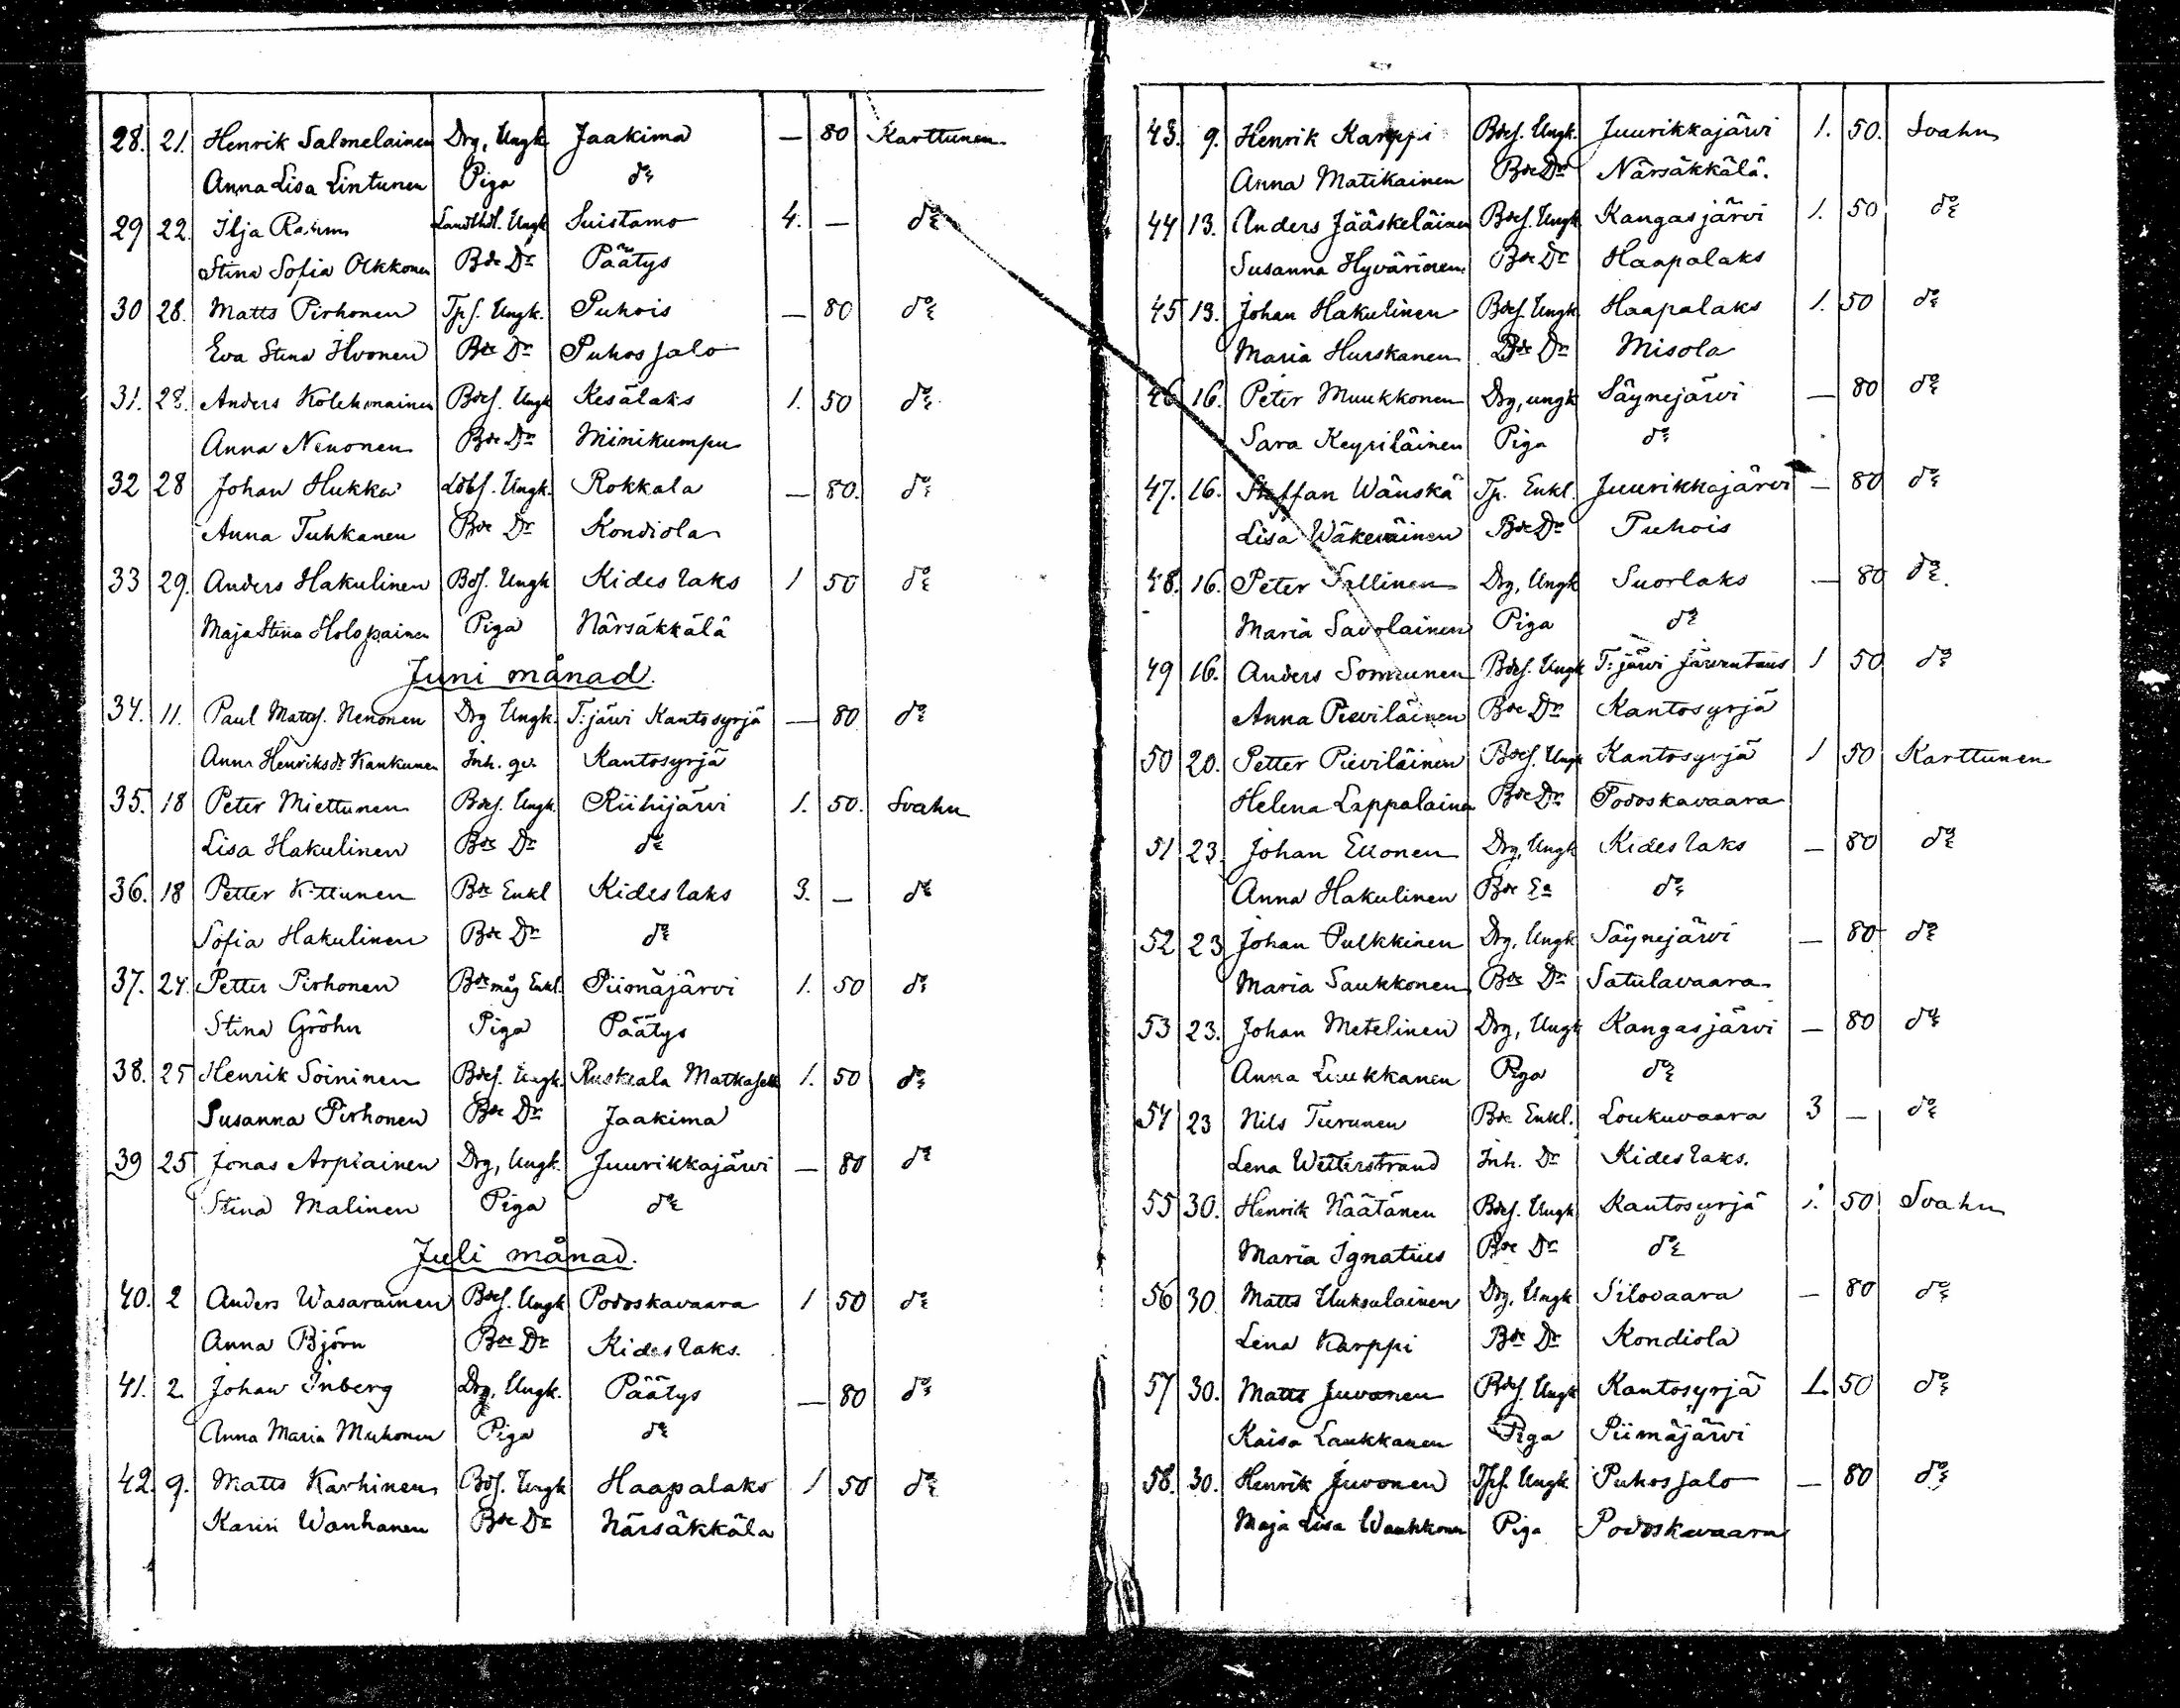 28. 21. Henrik Salonelainen Drg, Ungk Jaakima — 80 Karttunen
Anna Lisa Lintunen Piga do
29 22. Ilja Landthdl. Ungk Suistamo 4. — do
Stina Sofia Olkkonen Bde Dr Päätys
30 28. Matts Pirhonen Tpf. Ungk. Puhois — 80 do
Eva Stina Ikonen Bde Dr Puhossalo
31. 28. Anders Kolehmainen Bdef. Ungk Kesälaks 1. 50 do
Anna Nenonen Bde Dr Minikumpu
32 28 Johan Hukka Ldbf. Ungk. Rokkala — 80. do
Anna Tuhkanen Bde Dr Kondiola
33 29. Anders Hakulinen Bdf. Ungk Kideslaks 1 50 do
Maja Stina Holopainen Piga Närsäkkälä
Juni månad.
34. 11. Paul Mattf. Nenonen Drg Ungk. T:järvi Kantosyrjä — 80 do
Anna Henriksdr Kankunen Inh. qv. Kantosyrjä
35. 18 Peter Miettunen Bdef. Ungk. Riihijärvi 1. 50. Svahn
Lisa Hakulinen Bde Dr do
36. 18 Petter Kittunen Bde Enkl Kideslaks 3. — do
Sofia Hakulinen Bde Dr do
37. 24. Petter Pirhonen Bde måg Enkl. Piimäjärvi 1. 50 do
Stina Gröhn Piga Päätys
38. 25 Henrik Soininen Bdef. Ungk. Ruskeala Matkaselk 1. 50 do
Susanna Pirhonen Bde Dr Jaakima
39 25 Jonas Arpiainen Drg, Ungk. Juurikkajärvi — 80 do
Stina Malinen Piga do
Juli månad.
40. 2 Anders Wasarainen Bdef. Ungk Podoskavaara 1 50 do
Anna Björn Bde Dr Kideslaks.
41. 2 Johan Inberg Drg, Ungk. Päätys — 80 do
Anna Maria Muhonen Piga do
42. 9. Matts Karhinen Bdf. Ungk Haapalaks 1 50 do
Karin Wanhanen Bde Dr Närsäkkälä
43. 9. Henrik Karppi Bdef. Ungk. Juurikkajärvi 1. 50. Svahn
Anna Matikainen Bde Dr Närsäkkälä.
44 13. Anders Jääskeläinen Bdef. Ungk Kangasjärvi 1. 50 do
Susanna Hyvärinen Bde Dr Haapalaks
45 13. Johan Hakulinen Bdef. Ungk. Haapalaks 1. 50 do
Maria Hurskanen Bde Dr Misola
46 16. Peter Muukkonen Drg, ungk Säynejärvi — 80 do
Sara Keyriläinen Piga do
47. 16. Staffan Wänskä Tp. Enkl. Juurikkajärvi — 80 do
Lisa Wäkeväinen Bde Dr Puhois
48. 16. Peter Sallinen Drg, Ungk Suorlaks — 80 do
Maria Savolainen Piga do
49 16. Anders Sormunen Bdef. Ungk T:järvi Järventaus 1 50 do
Anna Pieviläinen Bde Dr Kantosyrjä
50 20. Petter Pieviläinen Bdef. Ungk Kantosyrjä 1 50 Karttunen
Helena Lappalainen Bde Dr Podoskavaara
51 23. Johan Ellonen Drg, Ungk Kideslaks — 80 do
Anna Hakulinen Bde Ea do
52 23 Johan Pulkkinen Drg, Ungk Säynejärvi — 80 do
Maria Saukkonen Bde Dr Satulavaara
53 23. Johan Metelinen Drg, Ungk Kangasjärvi — 80 do
Anna Luukkanen Piga do
54 23 Nils Turunen Bde Enkl. Loukuvaara 3 — do
Lena Wetterstrand Inh. Dr Kideslaks.
55 30. Henrik Näätänen Bdef. Ungk Kantosyrjä 1. 50 Svahn
Maria Ignatius Bde Dr do
56 30. Matts Uuksulainen Drg, Ungk Silovaara — 80 do
Lena Karppi Bde Dr Kondiola
57 30. Matts Juvonen Bdef. Ungk Kantosyrjä 1. 50 do
Kaisa Laukkanen Piga Piimäjärvi
58. 30. Henrik Juvonen Tpf. Ungk Puhossalo — 80 do
Maja Lisa Wauhkonen Piga Podoskavaara